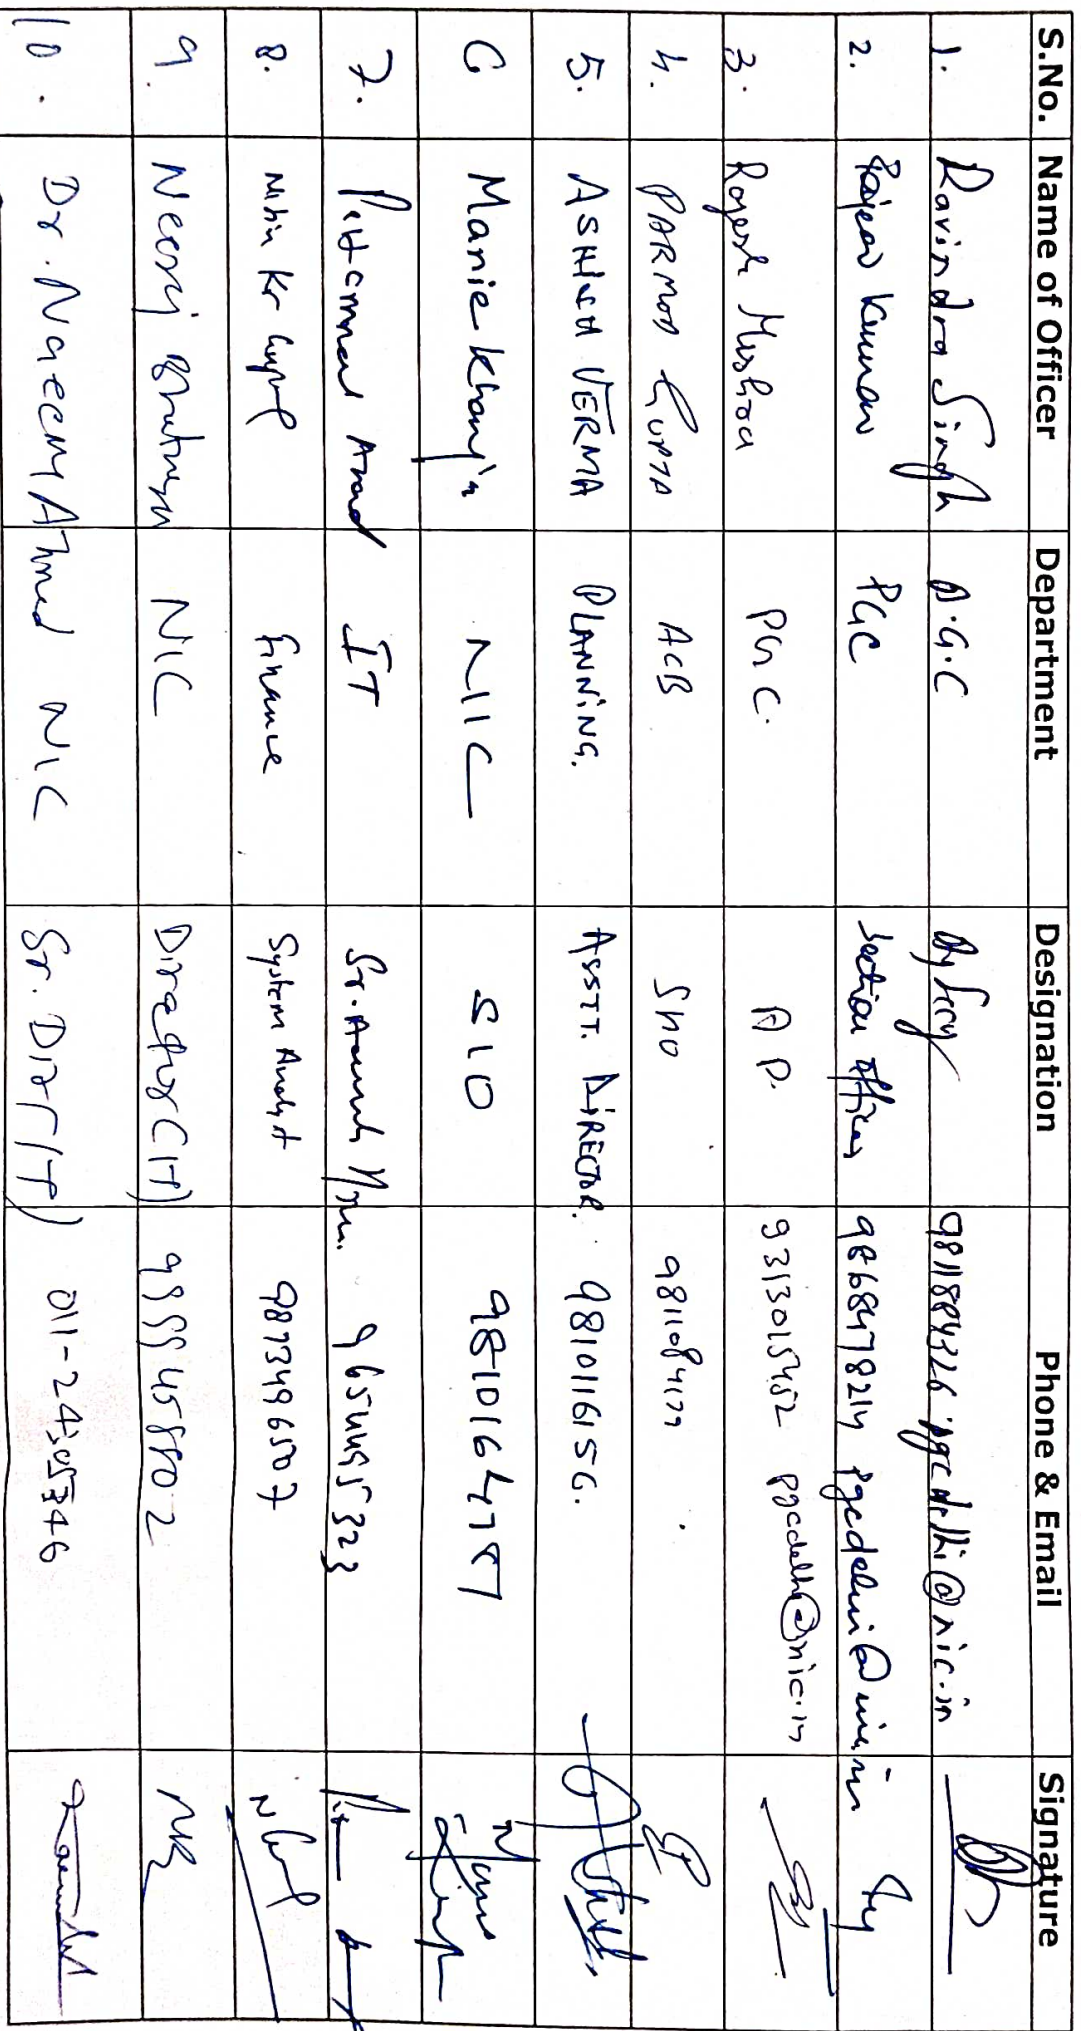 S.No. Name of Officer Department Designation Phone & Email Signature
1. Ravindra Singh P.G.C Dy Secy 9811884326 pgcdelhi@nic.in
2. Rajeev Kumar PGC Section officer 9868478214 pgcdelhi@nic.in
3. Rajesh Mishra PGC. A P. 9313015452 pgcdelhi@nic.in
4. PARMOD GUPTA ACB SHO 9811084177
5. ASHISH VERMA PLANNING. ASSTT. DIRECTOR. 9810116156.
6 Manie Khanjin NIC SIO
7. IT Sr. 9654495323
8. Nitin Kr Gupta Finance System Analyst 9873496507
9. Neeraj Bhatnagar NIC Director (IT)
10. Dr. Naeem Ahmed NIC Sr. Dir (IT)